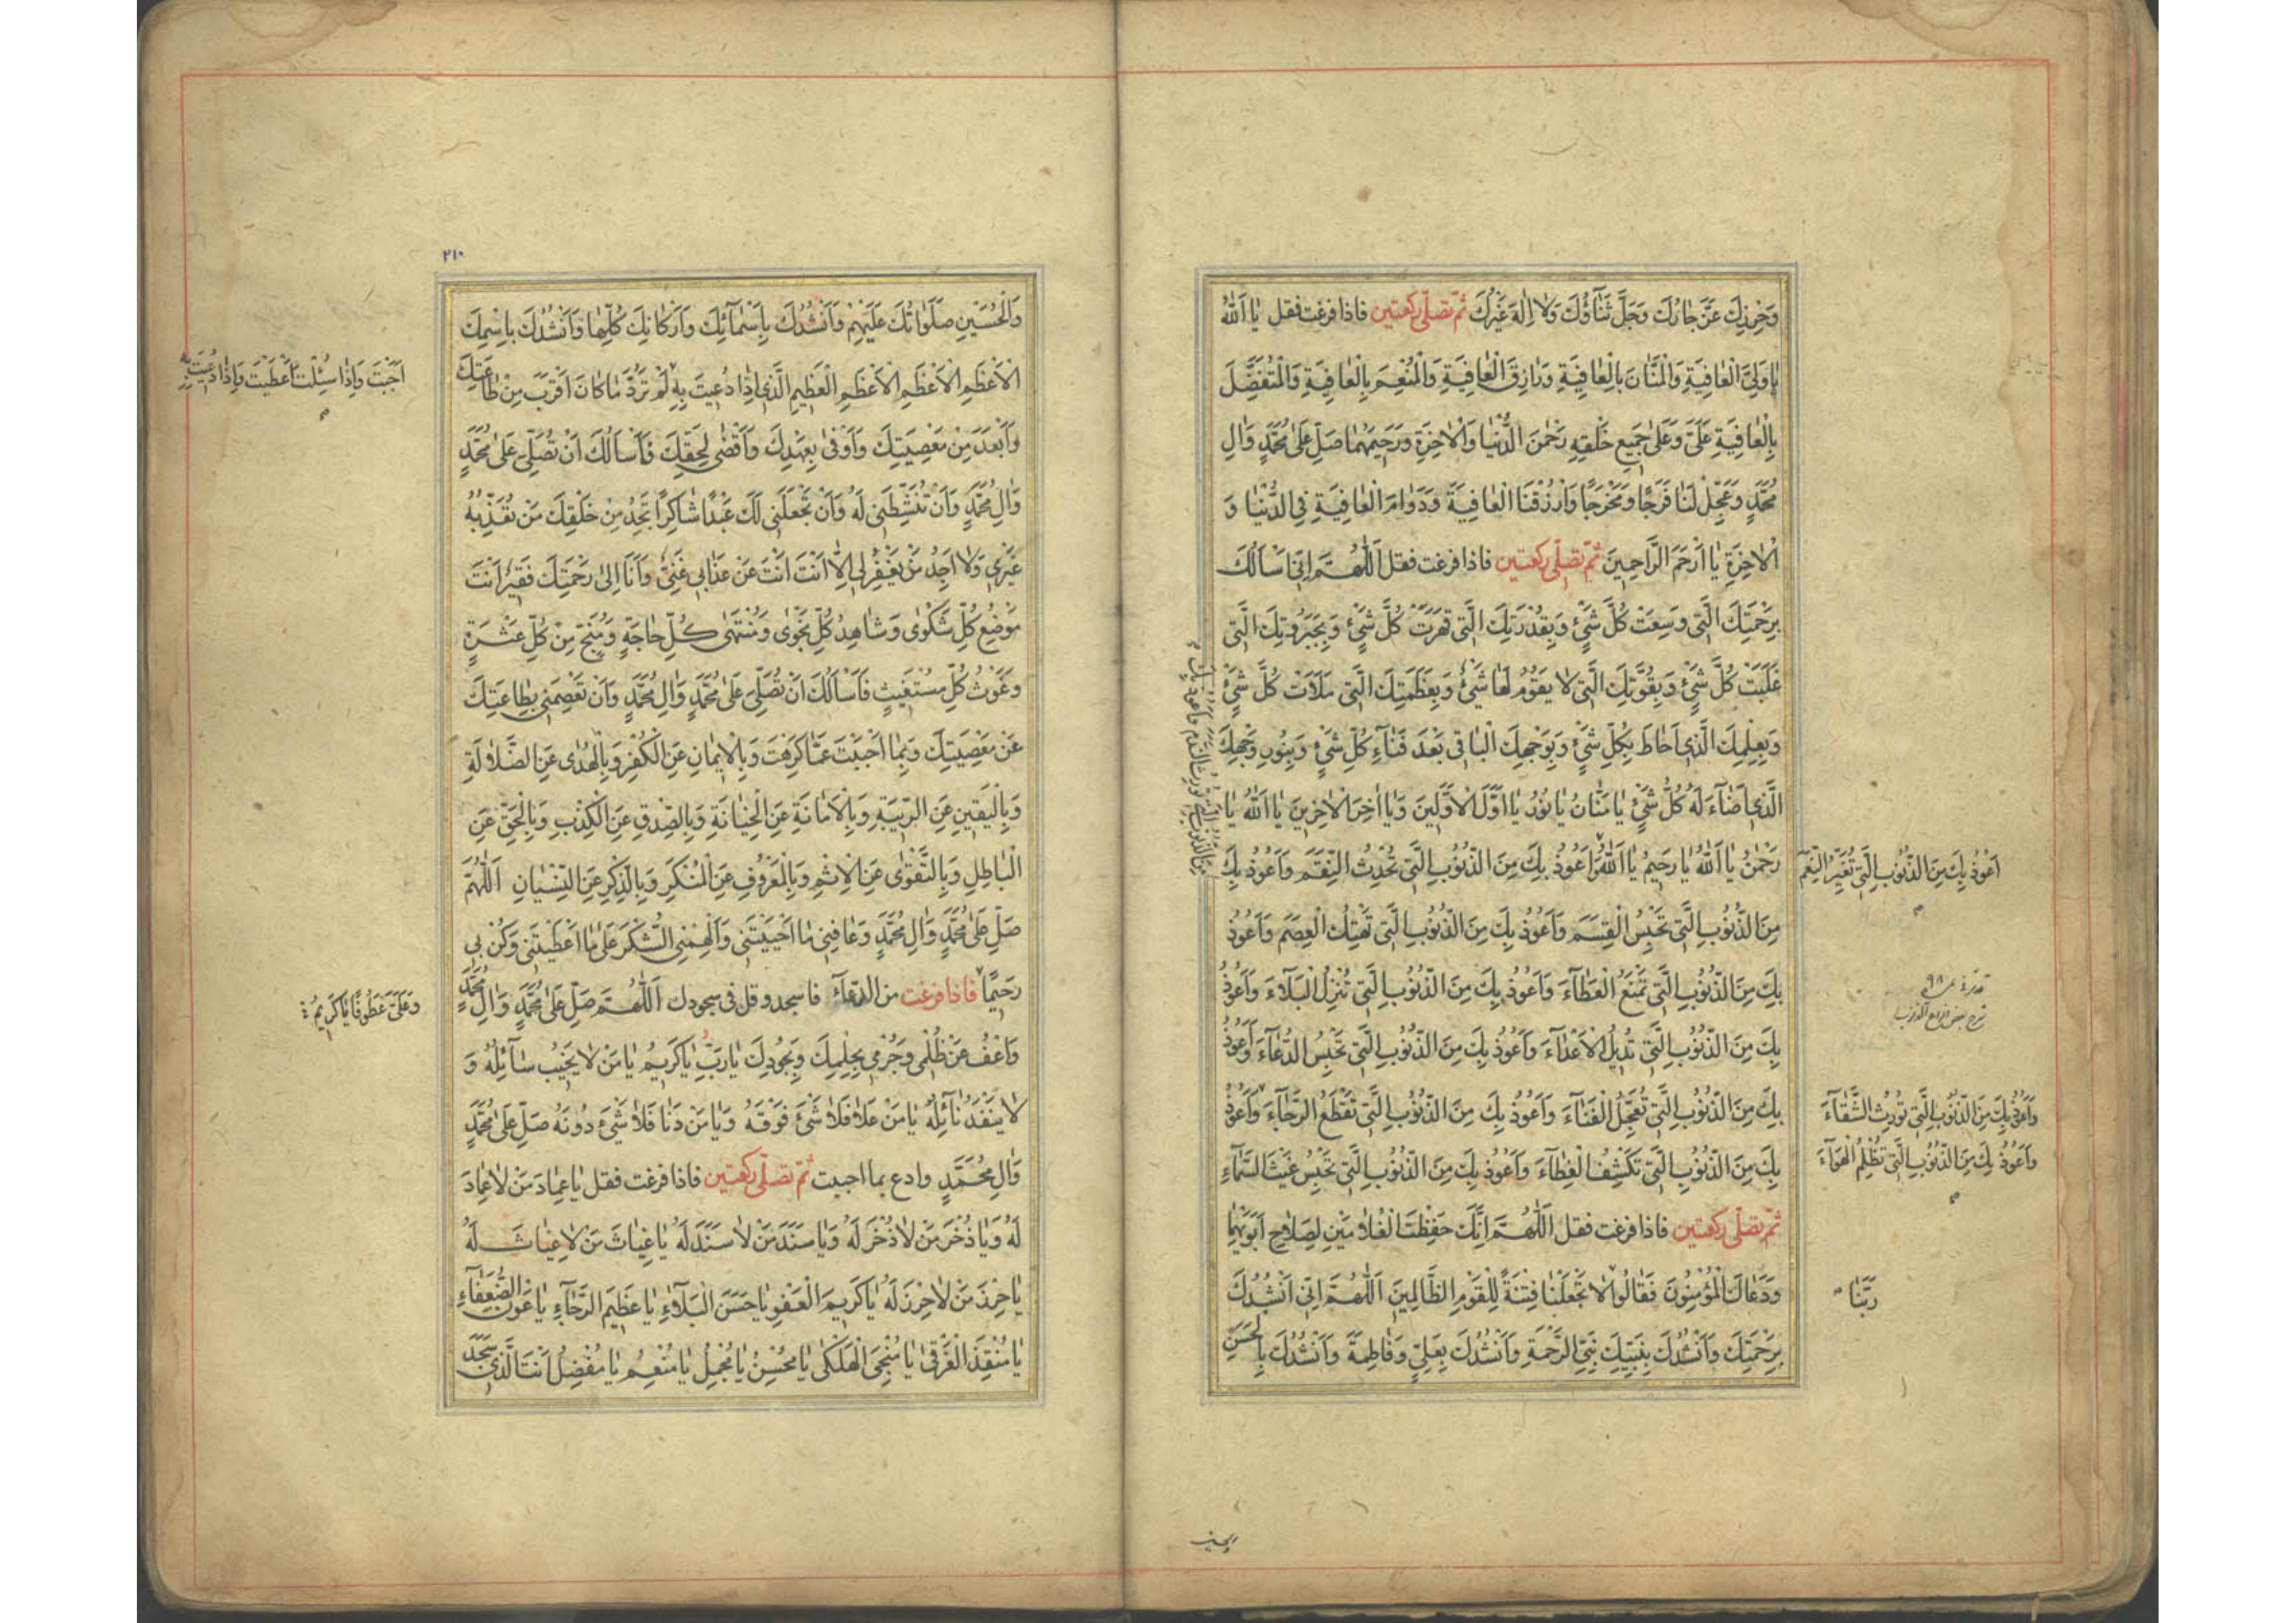 وَحِرْزِكَ عَزَّ جَارُكَ وَجَلَّ ثَنَآؤُكَ وَلَا اِلٰهَ غَيْرُكَ ثمّ تصلّى ركعتين فاذا فرغت فقل يَا اَللّٰهُ
يَا وَلِيَّ الْعَافِيَةِ وَالْمَنَّانَ بِالْعَافِيَةِ وَرَازِقَ الْعَافِيَةِ وَالْمُنْعِمَ بِالْعَافِيَةِ وَالْمُتَفَضِّلَ
بِالْعَافِيَةِ عَلَيَّ وَعَلٰى جَمِيعِ خَلْقِهِ رَحْمٰنَ الدُّنْيَا وَالْاٰخِرَةِ وَرَحِيمَهُمَا صَلِّ عَلٰى مُحَمَّدٍ وَاٰلِ
مُحَمَّدٍ وَعَجِّلْ لَنَا فَرَجًا وَمَخْرَجًا وَارْزُقْنَا الْعَافِيَةَ وَدَوَامَ الْعَافِيَةِ فِي الدُّنْيَا وَ
الْاٰخِرَةِ يَا اَرْحَمَ الرَّاحِمِينَ ثمّ تصلّى ركعتين فاذا فرغت فقل اَللّٰهُمَّ اِنِّي اَسْاَلُكَ
بِرَحْمَتِكَ الَّتِي وَسِعَتْ كُلَّ شَيْءٍ وَبِقُدْرَتِكَ الَّتِي قَهَرَتْ كُلَّ شَيْءٍ وَبِجَبَرُوتِكَ الَّتِي
غَلَبَتْ كُلَّ شَيْءٍ وَبِقُوَّتِكَ الَّتِي لَا يَقُومُ لَهَا شَيْءٌ وَبِعَظَمَتِكَ الَّتِي مَلَاَتْ كُلَّ شَيْءٍ
وَبِعِلْمِكَ الَّذِي اَحَاطَ بِكُلِّ شَيْءٍ وَبِوَجْهِكَ الْبَاقِي بَعْدَ فَنَآءِ كُلِّ شَيْءٍ وَبِنُورِ وَجْهِكَ
الَّذِي اَضَآءَ لَهُ كُلُّ شَيْءٍ يَا مَنَّانُ يَا نُورُ يَا اَوَّلَ الْاَوَّلِينَ وَيَا اٰخِرَ الْاٰخِرِينَ يَا اَللّٰهُ يَا
رَحْمٰنُ يَا اَللّٰهُ يَا رَحِيمُ يَا اَللّٰهُ وَاَعُوذُ بِكَ مِنَ الذُّنُوبِ الَّتِي تُحْدِثُ النِّقَمَ وَاَعُوذُ بِكَ
اَعُوذُ بِكَ مِنَ الذُّنُوبِ الَّتِي تُغَيِّرُ النِّعَمَ
مِنَ الذُّنُوبِ الَّتِي تَحْبِسُ الْقِسَمَ وَاَعُوذُ بِكَ مِنَ الذُّنُوبِ الَّتِي تَهْتِكُ الْعِصَمَ وَاَعُوذُ
بِكَ مِنَ الذُّنُوبِ الَّتِي تَمْنَعُ الْعَطَآءَ وَاَعُوذُ بِكَ مِنَ الذُّنُوبِ الَّتِي تُنْزِلُ الْبَلَآءَ وَاَعُوذُ
بِكَ مِنَ الذُّنُوبِ الَّتِي تُدِيلُ الْاَعْدَآءَ وَاَعُوذُ بِكَ مِنَ الذُّنُوبِ الَّتِي تَحْبِسُ الدُّعَآءَ وَاَعُوذُ
بِكَ مِنَ الذُّنُوبِ الَّتِي تُعَجِّلُ الْفَنَآءَ وَاَعُوذُ بِكَ مِنَ الذُّنُوبِ الَّتِي تَقْطَعُ الرَّجَآءَ وَاَعُوذُ
وَاَعُوذُ بِكَ مِنَ الذُّنُوبِ الَّتِي تُورِثُ الشَّقَآءَ
وَاَعُوذُ بِكَ مِنَ الذُّنُوبِ الَّتِي تُظْلِمُ الْهَوَآءَ
بِكَ مِنَ الذُّنُوبِ الَّتِي تَكْشِفُ الْغِطَآءَ وَاَعُوذُ بِكَ مِنَ الذُّنُوبِ الَّتِي تَحْبِسُ غَيْثَ السَّمَآءِ
ثمّ تصلّى ركعتين فاذا فرغت فقل اَللّٰهُمَّ اِنَّكَ حَفِظْتَ الْغُلَامَيْنِ لِصَلَاحِ اَبَوَيْهِمَا
وَدَعَاكَ الْمُؤْمِنُونَ فَقَالُوا لَا تَجْعَلْنَا فِتْنَةً لِلْقَوْمِ الظَّالِمِينَ اَللّٰهُمَّ اِنِّي اَنْشُدُكَ
رَبَّنَا
بِرَحْمَتِكَ وَاَنْشُدُكَ بِنَبِيِّكَ نَبِيِّ الرَّحْمَةِ وَاَنْشُدُكَ بِعَلِيٍّ وَفَاطِمَةَ وَاَنْشُدُكَ بِالْحَسَنِ
٢١٠
وَالْحُسَيْنِ صَلَوَاتُكَ عَلَيْهِمْ وَاَنْشُدُكَ بِاَسْمَآئِكَ وَاَرْكَانِكَ كُلِّهَا وَاَنْشُدُكَ بِاسْمِكَ
الْاَعْظَمِ الْاَعْظَمِ الْاَعْظَمِ الْعَظِيمِ الَّذِي اِذَا دُعِيتَ بِهِ لَمْ تَرُدَّ مَا كَانَ اَقْرَبَ مِنْ طَاعَتِكَ
اَجَبْتَ وَاِذَا سُئِلْتَ اَعْطَيْتَ وَاِذَا دُعِيتَ بِهِ
وَاَبْعَدَ مِنْ مَعْصِيَتِكَ وَاَوْفٰى بِعَهْدِكَ وَاَقْضٰى لِحَقِّكَ فَاَسْاَلُكَ اَنْ تُصَلِّيَ عَلٰى مُحَمَّدٍ
وَاٰلِ مُحَمَّدٍ وَاَنْ تُنَشِّطَنِي لَهُ وَاَنْ تَجْعَلَنِي لَكَ عَبْدًا شَاكِرًا تَجِدُ مِنْ خَلْقِكَ مَنْ تُعَذِّبُهُ
غَيْرِي وَلَا اَجِدُ مَنْ يَغْفِرُ لِي اِلَّا اَنْتَ اَنْتَ عَنْ عَذَابِي غَنِيٌّ وَاَنَا اِلٰى رَحْمَتِكَ فَقِيرٌ اَنْتَ
مَوْضِعُ كُلِّ شَكْوٰى وَشَاهِدُ كُلِّ نَجْوٰى وَمُنْتَهٰى كُلِّ حَاجَةٍ وَمُنْجٍ مِنْ كُلِّ عَثْرَةٍ
وَغَوْثُ كُلِّ مُسْتَغِيثٍ فَاَسْاَلُكَ اَنْ تُصَلِّيَ عَلٰى مُحَمَّدٍ وَاٰلِ مُحَمَّدٍ وَاَنْ تَعْصِمَنِي بِطَاعَتِكَ
عَنْ مَعْصِيَتِكَ وَبِمَا اَحْبَبْتَ عَمَّا كَرِهْتَ وَبِالْاِيمَانِ عَنِ الْكُفْرِ وَبِالْهُدٰى عَنِ الضَّلَالَةِ
وَبِالْيَقِينِ عَنِ الرِّيبَةِ وَبِالْاَمَانَةِ عَنِ الْخِيَانَةِ وَبِالصِّدْقِ عَنِ الْكِذْبِ وَبِالْحَقِّ عَنِ
الْبَاطِلِ وَبِالتَّقْوٰى عَنِ الْاِثْمِ وَبِالْمَعْرُوفِ عَنِ الْمُنْكَرِ وَبِالذِّكْرِ عَنِ النِّسْيَانِ اَللّٰهُمَّ
صَلِّ عَلٰى مُحَمَّدٍ وَاٰلِ مُحَمَّدٍ وَعَافِنِي مَا اَحْيَيْتَنِي وَاَلْهِمْنِي الشُّكْرَ عَلٰى مَا اَعْطَيْتَنِي وَكُنْ بِي
رَحِيمًا فاذا فرغت من الدعآء فاسجد وقل فى سجودك اَللّٰهُمَّ صَلِّ عَلٰى مُحَمَّدٍ وَاٰلِ مُحَمَّدٍ
وَعَلَيَّ عَطُوفًا يَا كَرِيمُ
وَاعْفُ عَنْ ظُلْمِي وَجُرْمِي بِحِلْمِكَ وَبِجُودِكَ يَا رَبِّ يَا كَرِيمُ يَا مَنْ لَا يَخِيبُ سَآئِلُهُ وَ
لَا يَنْفَدُ نَآئِلُهُ يَا مَنْ عَلَا فَلَا شَيْءَ فَوْقَهُ وَيَا مَنْ دَنَا فَلَا شَيْءَ دُونَهُ صَلِّ عَلٰى مُحَمَّدٍ
وَاٰلِ مُحَمَّدٍ وادع بما احببت ثمّ تصلّى ركعتين فاذا فرغت فقل يَا عِمَادَ مَنْ لَا عِمَادَ
لَهُ وَيَا ذُخْرَ مَنْ لَا ذُخْرَ لَهُ وَيَا سَنَدَ مَنْ لَا سَنَدَ لَهُ يَا غِيَاثَ مَنْ لَا غِيَاثَ لَهُ
يَا حِرْزَ مَنْ لَا حِرْزَ لَهُ يَا كَرِيمَ الْعَفْوِ يَا حَسَنَ الْبَلَآءِ يَا عَظِيمَ الرَّجَآءِ يَا عَوْنَ الضُّعَفَآءِ
يَا مُنْقِذَ الْغَرْقٰى يَا مُنْجِيَ الْهَلْكٰى يَا مُحْسِنُ يَا مُجْمِلُ يَا مُنْعِمُ يَا مُفْضِلُ اَنْتَ الَّذِي سَجَدَ